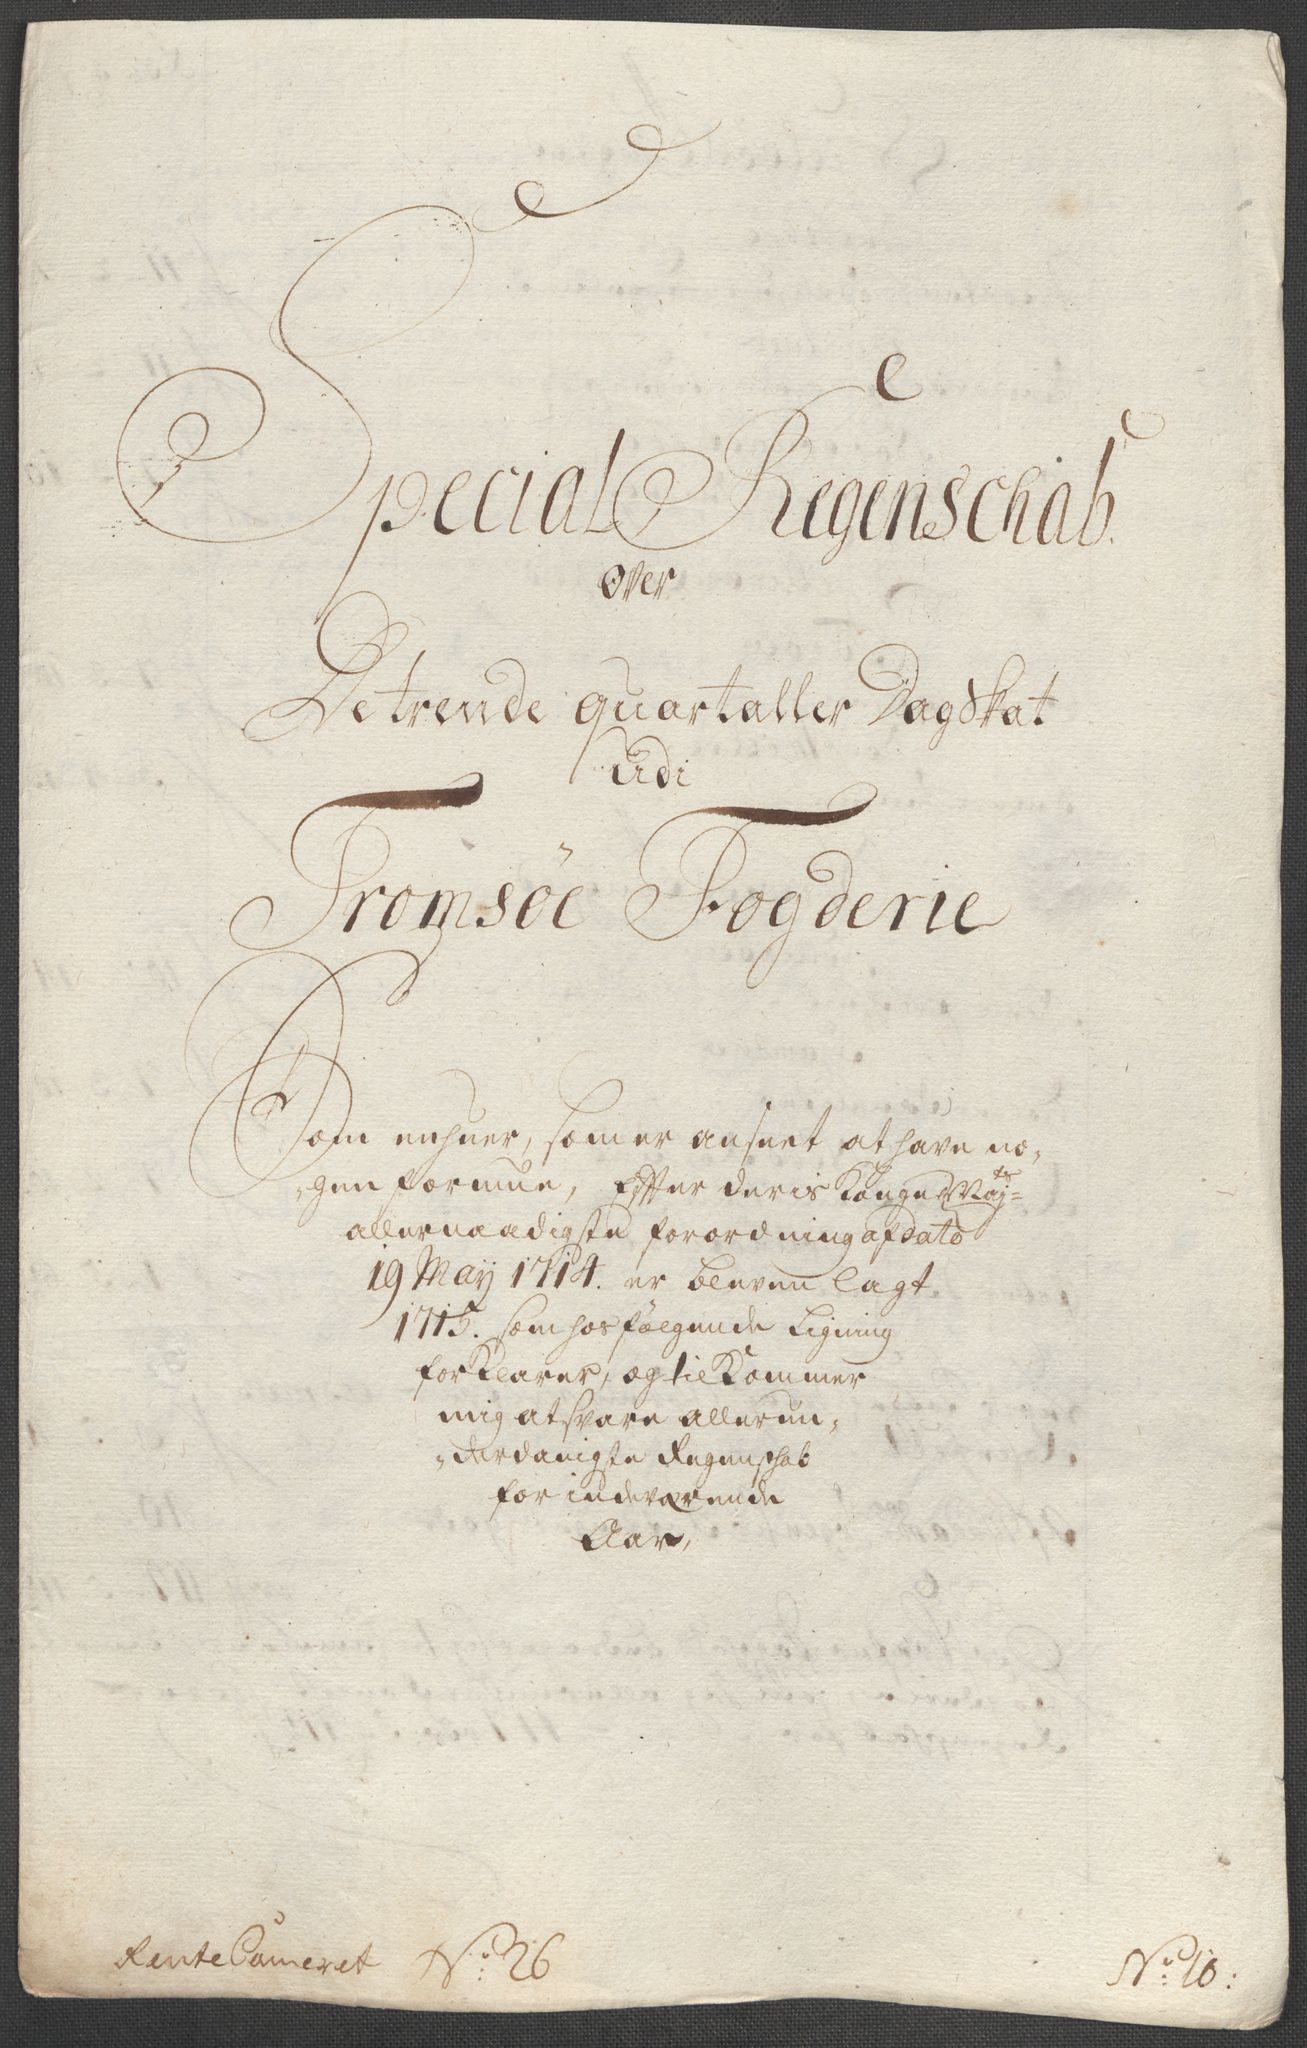 Special Regenschab
over
De trende quartaller Dagskat
udi
Tromsöe Fogderie
Som enhuer, som er anseet at have no-
-gen formue, Effter deris Konge: May:ts
allernaadigste forordning af dato
19 May 1714. er bleven lagt
1715. som hos fölgende Ligning
forklarer, og tilkommer
mig at svare allerun-
-derdanigste Regenschab
for indeværende
Aar,
RenteCameret No: 26
No: 10: